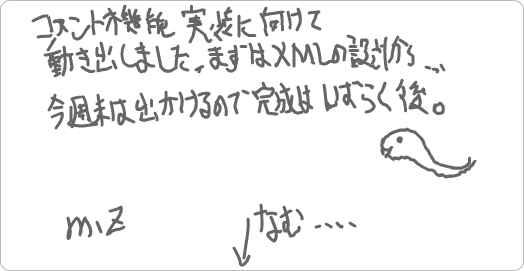 コメント機能実装に向けて
動き出しました。まずはXMLの設計から…
今週末は出かけるので完成はしばらく後。
miz
なむ....